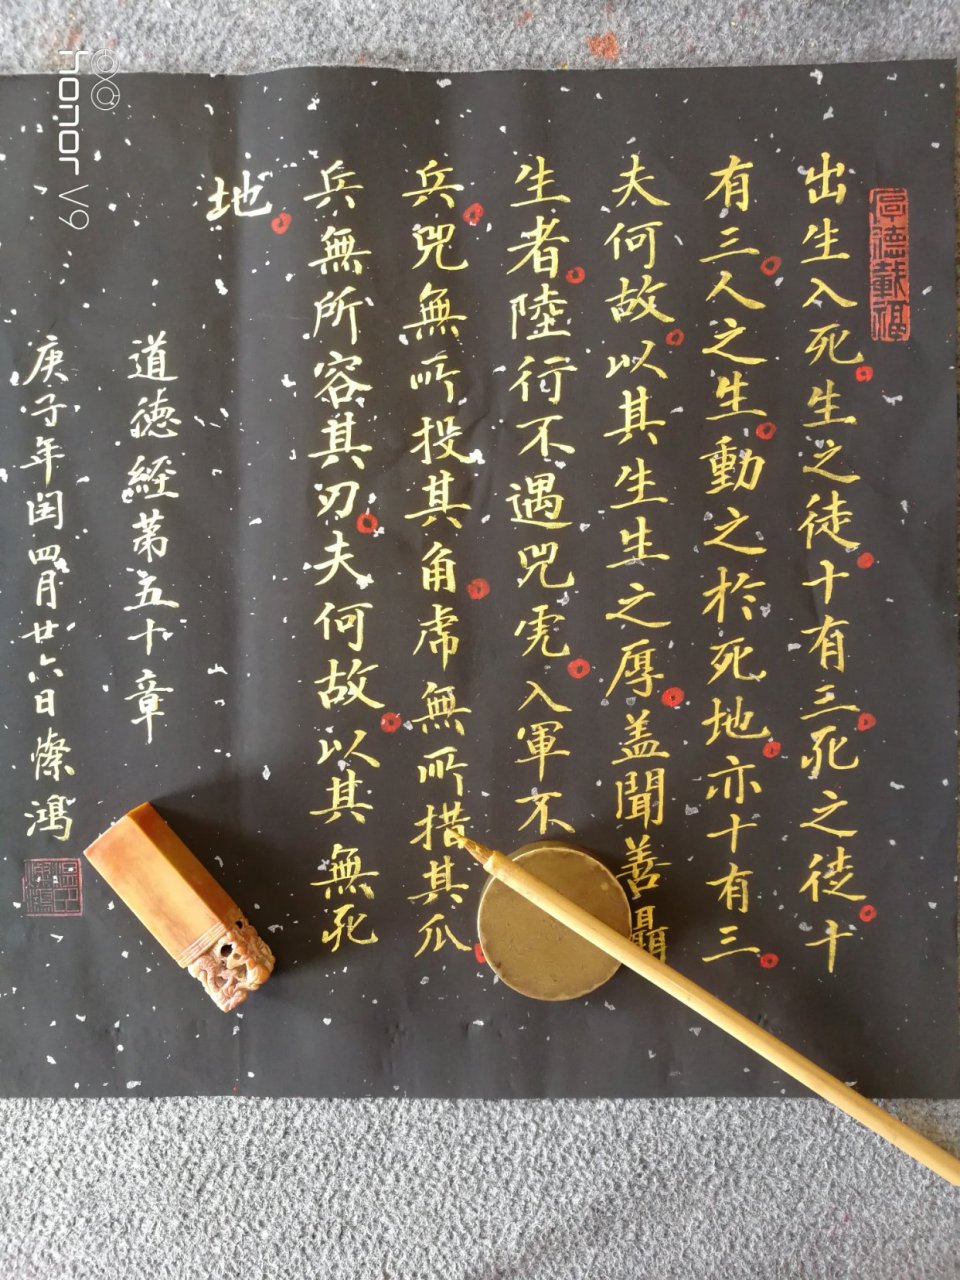 厚德載福
出生入死生之徒十有三死之徒十
有三人之生動之於死地亦十有三
夫何故以其生生之厚盖聞善攝
生者陸行不遇兕虎入軍不
兵兕無所投其角虎無所措其爪
兵無所容其刃夫何故以其無死
地
道德經第五十章
庚子年闰四月廿六日燦鴻
honor V9